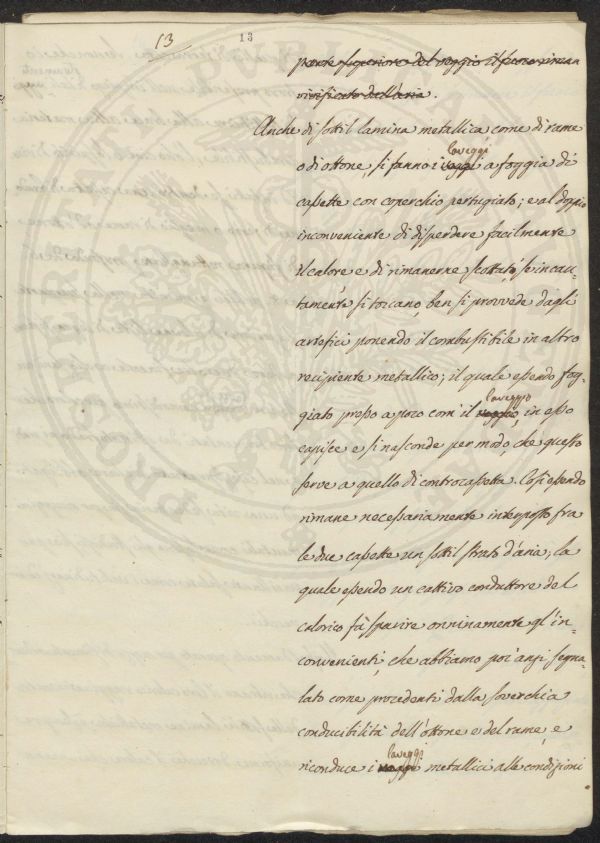 13 13
parte superiore del veggio il fuoco riman
vivificato dall'aria.
Anche di sottil lamina metallica come di rame
o di ottone si fanno i veggi laveggi a foggia di
casette con coperchio pertugiato; e al doppio
inconveniente di disperdere facilmente
il calore e di rimanerne scottato, se incau=
tamente si toccano, ben si provvede dagli
artefici ponendo il combustibile in altro
recipiente metallico; il quale essendo fog=
giato presso a poco com' il veggio laveggio, in esso
capisce e si nasconde per modo, che questo
serve a quello di controcassetta. Così essendo
rimane necessariamente interposto fra
le due casette un sottil strato d'aria, la
quale essendo un cattivo conduttore del
calorico fà sparire onninamente gl'in=
convenienti, che abbiamo poc'anzi segna=
lato come procedenti dalla soverchia
conducibilità dell'ottone e del rame, e
riconduce i veggi laveggi metallici alle condizioni